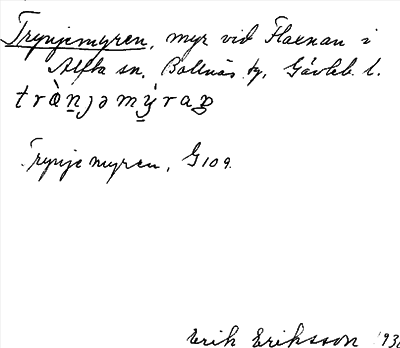 Trynjemyren, myr vid Flaxnan i
Alfta sn. Bollnäs tg, Gävleb. l.
trànjəmýraɲ
Trynjemyren, G109.
Erik Eriksson 193